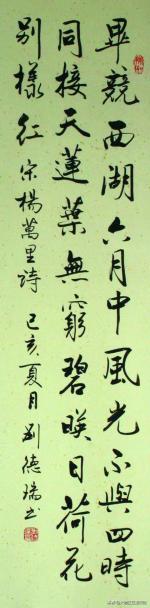 畢競西湖六月中風光不與四時
同接天蓮葉無窮碧映日荷花
別樣紅 宋楊萬里詩 己亥夏月劉德瑞书